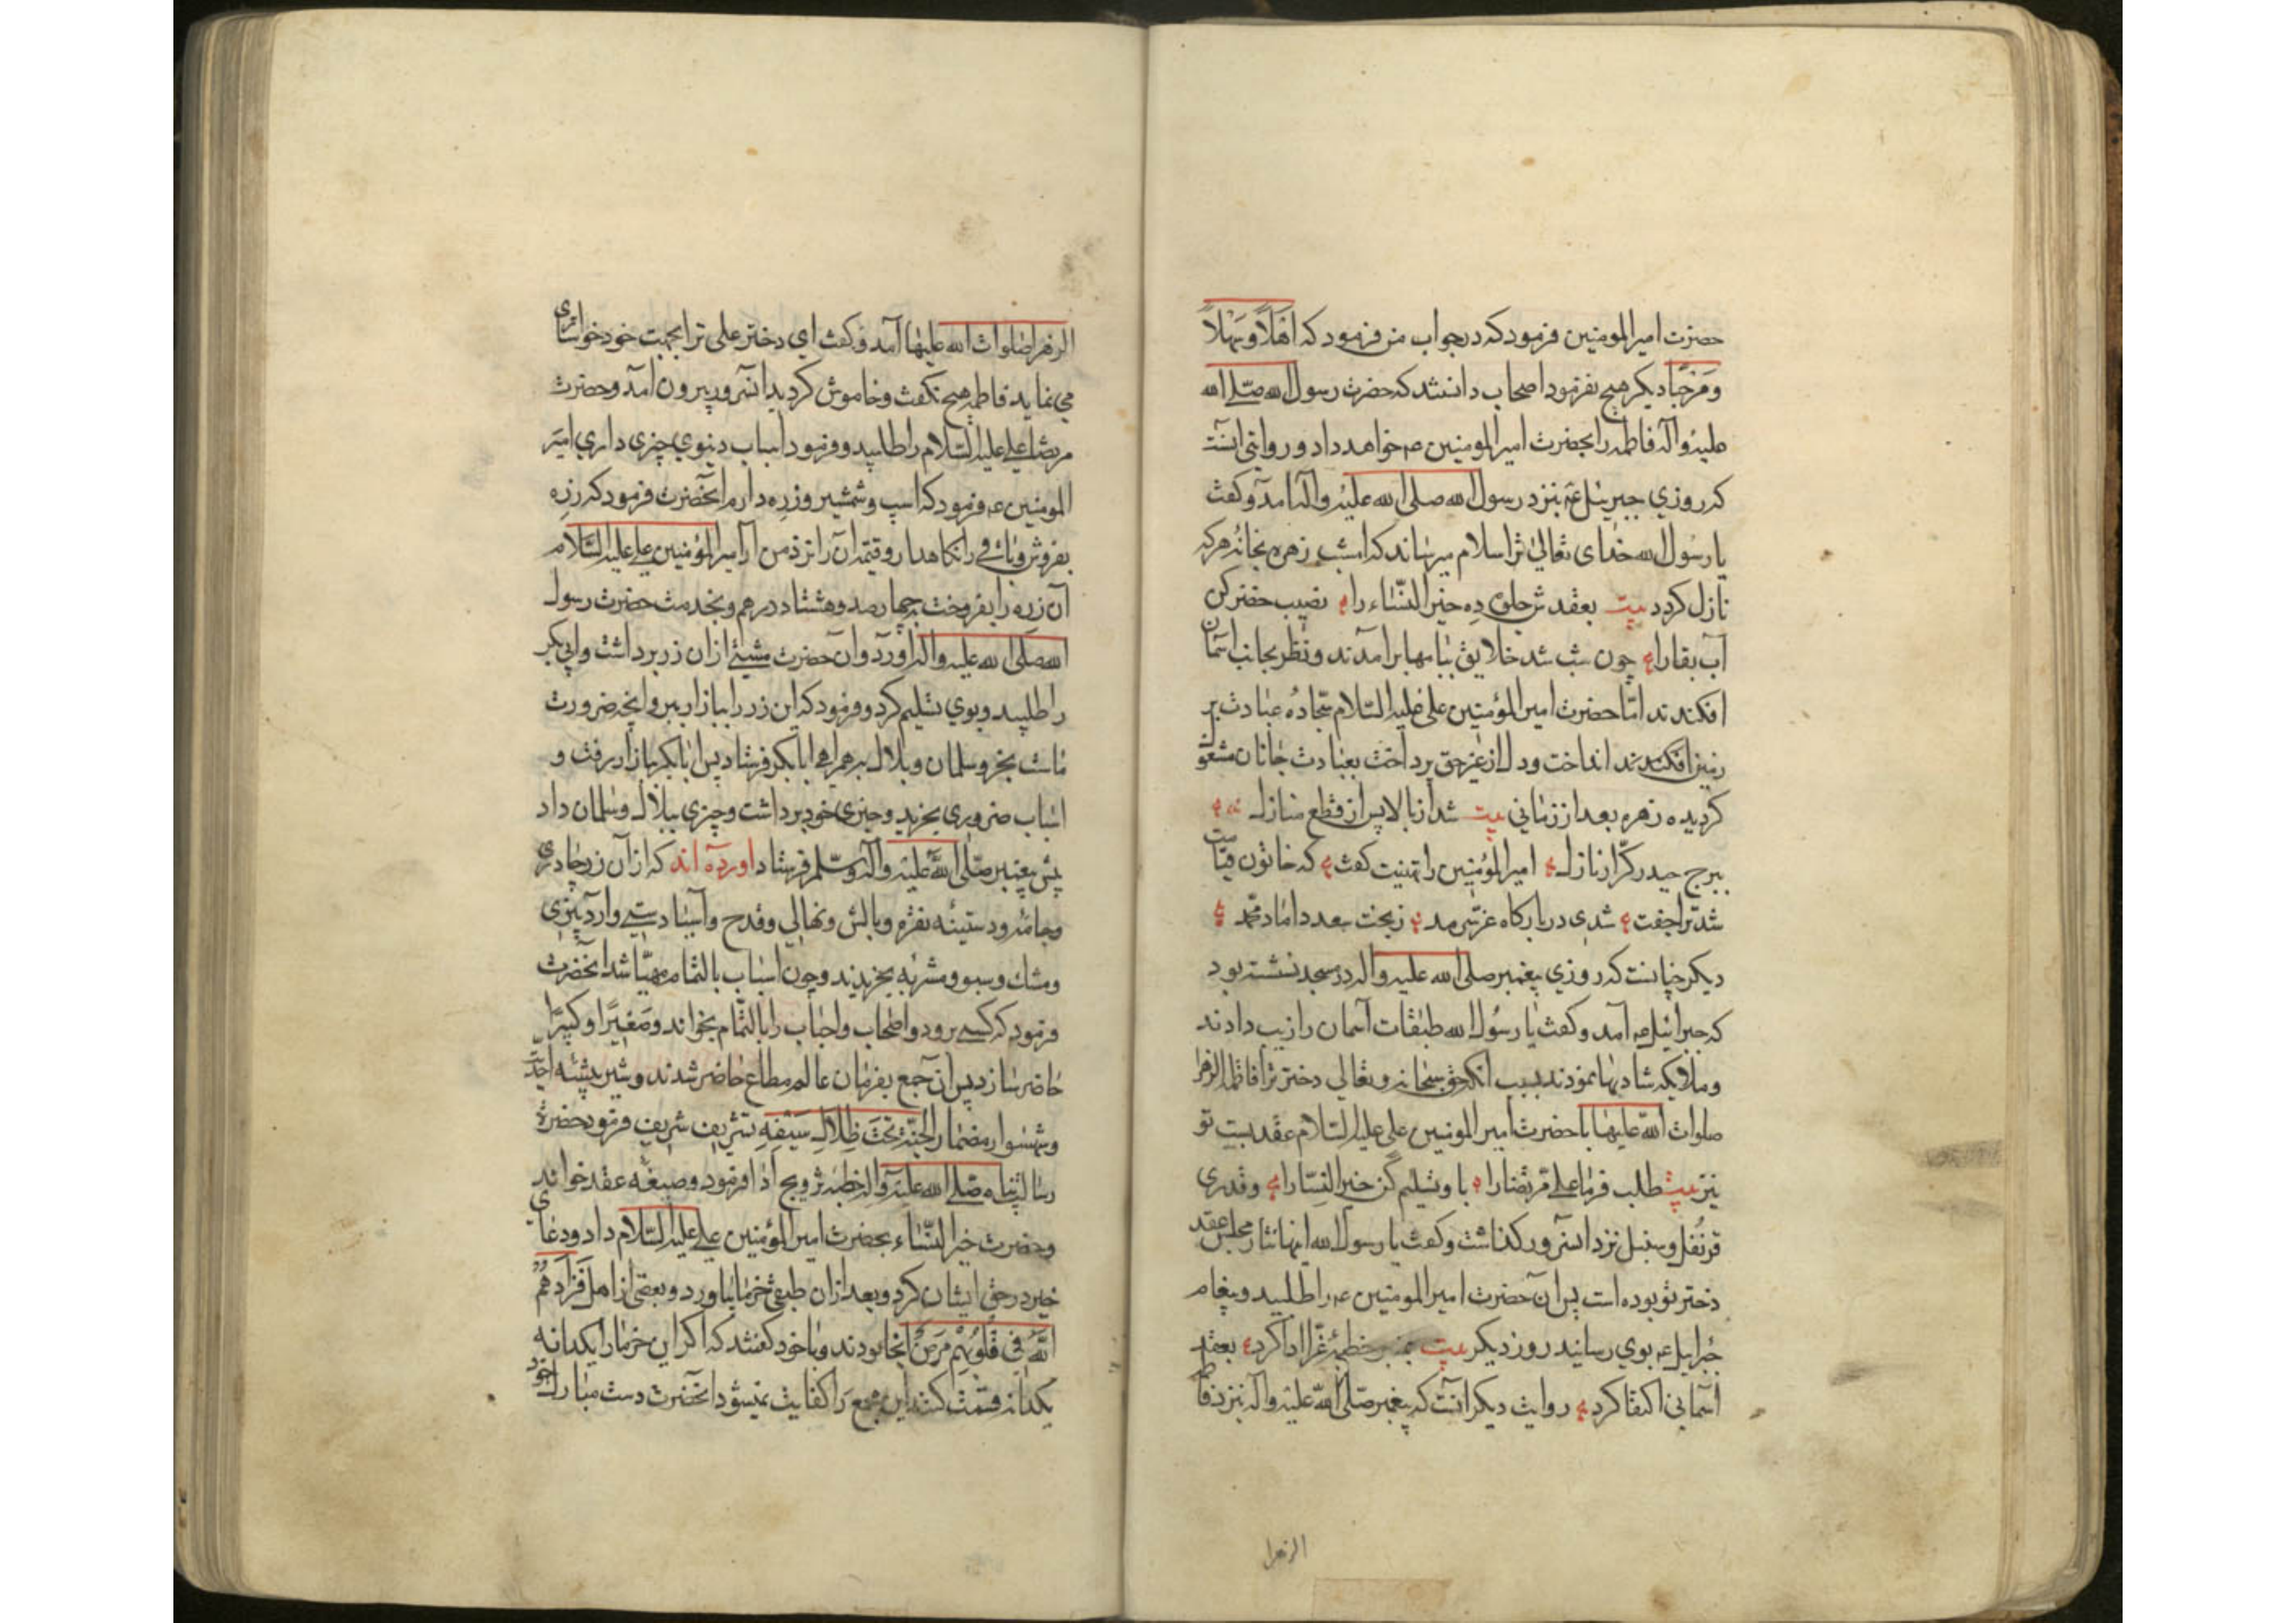 حضرت امیرالمومنین فرمود که در جواب من فرمود که اَهْلاً وَسَهْلاً
وَمَرْحَبًا دیکر هیچ نفرمود اصحاب دانستند که حضرت رسول الله صلی الله
علیه وآله فاطمه را بحضرت امیرالمومنین ع خواهد داد و روایتی انست
که روزي جبرییل ع بنزد رسول الله صلی الله علیه وآله آمد و کفت
یا رسول الله خدای تعالی ترا سلام میرساند که امشب زهره بخانه هرکه
نازل کردد بیت بعقدش جلوه ده خیر النساء را نصیب خضر کن
آب بقا را چون شب شد خلایق ببامها برآمدند و نظر بجانب آسمان
افکندند امّا حضرت امیرالمؤمنین علی علیه السلام سجّاده عبادت بر
زمین افکندند انداخت و دل از غیر حق پرداخت بعبادت جانان مشغول
کردیده زهره بعد از زمانی بیت شد از بالا پس از قطع منازل
ببرج حیدر کرّار نازل امیرالمؤمنین را تهنیت کفت که خاتون قیامت
شد ترا جفت شدی در بارکاه عزّ سرمد ز بخت سعد داماد محمّد
دیکر چنانست که روزي پیغمبر صلی الله علیه واله در مسجد نشسته بود
که جبرائیل ع آمد و کفت یا رسول الله طبقات آسمان را زیب دادند
وملایکه شادیها نمودند بسبب انکه حق سبحانه وتعالی دختر ترا فاطمة الزهرا
صلوات الله علیها با حضرت امیرالمومنین علی علیه السلام عقد بست تو
نیز بیت طلب فرما علی مرتضا را باو تسلیم کن خیر النسا را وقدری
قرنفل وسنبل نزد آنسرور کذاشت وکفت یا رسول الله اینها نثار مجلس عقد
دختر تو بوده است پس آن حضرت امیرالمومنین ع را طلبید وپیغام
جبرایل ع بوي رسانید روز دیکر بیت بمنبر خطبهٔ غرّا ادا کرد بعقد
آسمانی اکتفا کرد روایت دیکر آنست که پیغمبر صلی الله علیه وآله بنزد فاطمة
الزهرا
الزهرا صلوات الله علیها آمد و کفت ای دختر علی ترا بجهت خود خواستاری
می نماید فاطمه هیچ نکفت وخاموش کردید آنسرور بیرون آمد وحضرت
مرتضا علی علیه السّلام را طلبید و فرمود اسباب دنیوي چیزی داري امیر
المومنین ع فرمود که اسب وشمشیر وزره دارم آنحضرت فرمود که زره
بفروش وباقی را نکاهدار وقیمت آن را نزد من آر امیرالمؤمنین علی علیه السّلام
آن زره را بفروخت بچهارصد وهشتاد درهم وبخدمت حضرت رسول
الله صلی الله علیه واله آورد وآن حضرت مشتی از آن زر برداشت وابی بکر
را طلبید وبوي تسلیم کرد وفرمود که این زر را ببازار ببر وآنچه ضرورت
باشد بخر وسلمان وبلال بهمراهی ابابکر فرستاد پس ابابکر ببازار رفت و
اسباب ضروري بخرید وچیزی خود برداشت وچیزی ببلال وسلمان داد
پیش پیغمبر صلّی الله علیه وآله وسلّم فرستاد اورده اند که از آن زر چادری
وجامه ودستینه نقره وبالش ونهالی وقدح وآسیا دستی وآردبیزی
ومشک وسبو ومشربه بخریدند وچون اسباب بالتمام مهیّا شد آنحضرت
فرمود که کسی برود واصحاب واحباب را بالتمام بخواند وصَغیرًا وکبیرًا
حاضر سازد پس آن جمع بفرمان عالم مطاع حاضر شدند وشیر بیشه احدیت
وشهسوار مضمار الجنّة تحت ظلال سیفه تشریف شریف فرمود حضرة
رسالتپناه صلی الله علیه واله خطبه تزویج ادا فرمود وصیغه عقد خواند
وحضرت خیر النساء بحضرت امیرالمؤمنین علی علیه السّلام داد ودعای
خیر در حق ایشان کرد وبعد از آن طبقی خرما بیاورد وبعضی از اهل فَزَادَهُمُ
اللّهُ فِي قُلُوبِهِمْ مَرَضٌ آنجا بودند وبا خود کفتند که اکر این خرما را یکدانه
یکدانه قسمت کنند این جمع را کفایت نمیشود آنحضرت دست مبارک خود